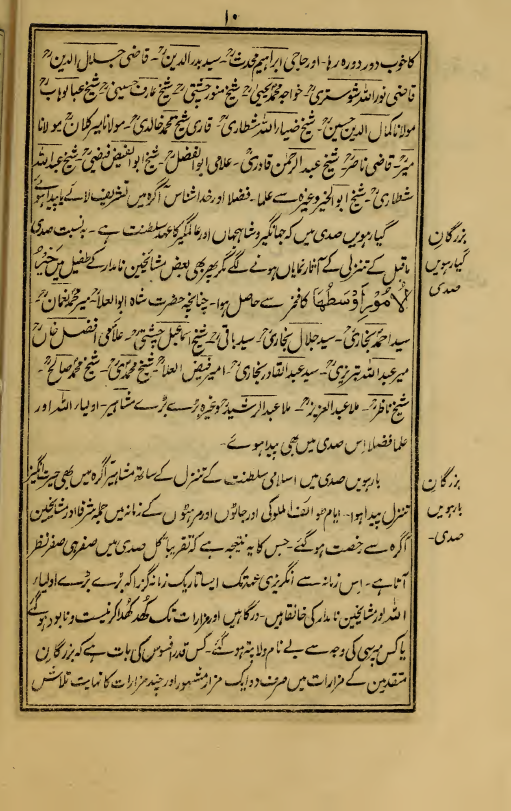 ۱۰
کا خوب دور دورہ رہا۔ اور حاجی ابراہیم محدثؒ۔ سید بدر الدینؒ۔ قاضی جلال الدینؒ
قاضی نور اللہ شوستریؒ۔ خواجہ محمد یحییٰؒ۔ شیخ منور چشتیؒ۔ شیخ عارف حسینیؒ۔ شیخ عبد الوہابؒ
مولانا کمال الدین حسینؒ۔ شیخ ضیاء اللہ شطاریؒ۔ قاری شیخ محمد خالدیؒ۔ مولانا میر کلاںؒ۔ مولانا
میرؒ۔ قاضی ناصرؒ۔ شیخ عبد الرحمٰن قادریؒ۔ علامی ابو الفضلؒ۔ شیخ ابو الفیض فیضیؒ۔ شیخ عبد اللہ
شطاریؒ۔ شیخ ابو الخیرؒ وغیرہ سے علما۔ فضلا اور خدا شناس آگرہ میں تشریف لائے یا پیدا ہوئے
بزرگان گیارہویں صدی
گیارہویں صدی میں کہ جہانگیر و شاہجہاں اور عالمگیر کا عہد سلطنت ہے۔ بہ نسبت صدی
ماقبل کے تنزلی کے آثار نمایاں ہونے لگے مگر پھر بھی بعض مشائخین نامدار کے طفیل میں خیر
الامور اوسطہا کا فخر اسے حاصل ہوا۔ چنانچہ حضرت شاہ ابو العلاؒ۔ میر محمد نعمانؒ۔
سید احمد بخاریؒ۔ سید جلال بخاریؒ۔ سید باقیؒ۔ شیخ اسماعیل چشتیؒ۔ علامی افضل خاںؒ
میر عبد اللہ تبریزیؒ۔ سید عبد القادر بخاریؒ۔ امیر فیض العلاؒ۔ شیخ محمدیؒ۔ شیخ محمد صالحؒ۔
شیخ ناظرؒ۔ ملا عبد العزیزؒ۔ ملا عبد الرشیدؒ وغیرہ بڑے بڑے مشاہیر۔ اولیاء اللہ اور
علما فضلا اس صدی میں بھی پیدا ہوئے۔
بزرگان بارہویں صدی۔
بارہویں صدی میں اسلامی سلطنت کے تنزل کے ساتھ مشاہیر آگرہ میں بھی حیرت انگیز
تنزل پیدا ہوا۔ ایام طوائف الملوکی اور جاٹوں اور مرہٹوں کے زمانہ میں جملہ شرفا اور مشائخین
آگرہ سے رخصت ہو گئے۔ جس کا یہ نتیجہ ہے کہ تقریباً کل صدی میں صفر ہی صفر نظر
آتا ہے۔ اس زمانہ سے انگریزی عہد تک ایسا تاریک زمانہ گزرا کہ بڑے بڑے اولیاء
اللہ اور مشائخین نامدار کی خانقاہیں۔ درگاہیں اور مزارات تک کھد کھدا کر نیست و نابود ہو گئے
یا کس مپرسی کی وجہ سے بے نام و لا پتہ ہو گئے۔ کس قدر افسوس کی بات ہے کہ بزرگان
متقدمین کے مزارات میں صرف دو ایک مزار مشہور اور چند مزارات کا نہایت تلاش